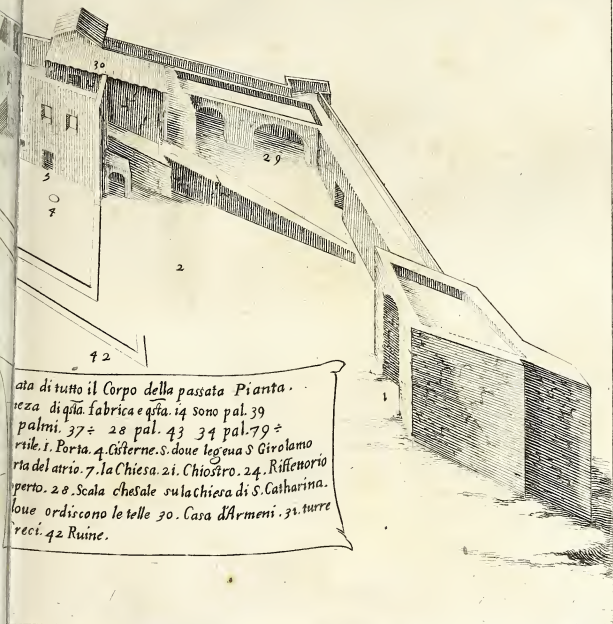 30
29
5
4
2
42
1
ata di tutto il Corpo della passata Pianta.
eza di q̄sta. fabrica e q̄sta. 14 sono pal. 39
palmi. 37÷ 28 pal. 43 34 pal. 79÷
rtile. 1. Porta. 4. Cisterne. 5. doue legeua S Girolamo
rta del atrio. 7. la Chiesa. 21. Chiostro. 24. Riffettorio
perto. 28. Scala che sale su la chiesa di S. Catharina.
doue ordiscono le telle 30. Casa d'Armeni. 31. turre
reci. 42 Ruine.